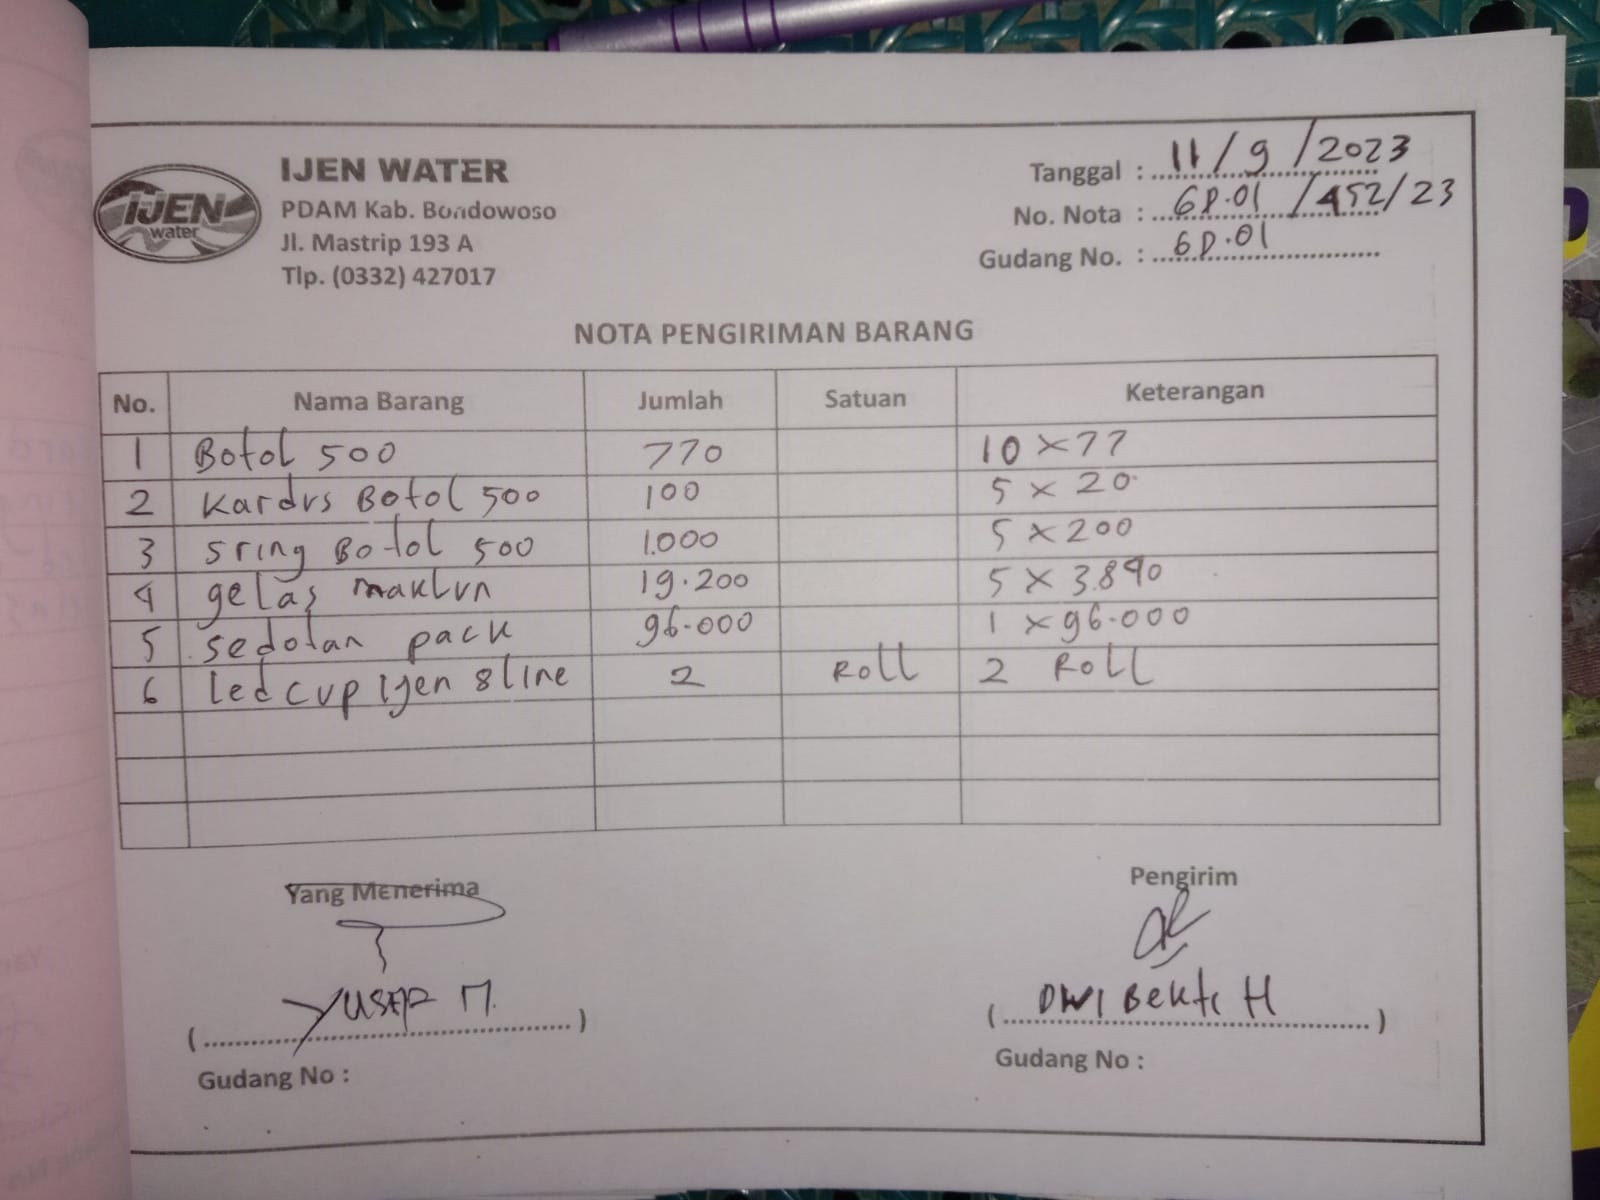 IJEN
water
IJEN WATER
PDAM Kab. Bondowoso
Jl. Mastrip 193 A
Tlp. (0332) 427017
Tanggal : 11/9/2023
No. Nota : GD.01/452/23
Gudang No. : GD.01
NOTA PENGIRIMAN BARANG
No. Nama Barang Jumlah Satuan Keterangan
1 Botol 500 770 10 x 77
2 Kardus Botol 500 100 5 x 20
3 Sring Botol 500 1.000 5 x 200
4 gelas maklun 19.200 5 x 3.840
5 sedotan pack 96.000 1 x 96.000
6 Led cup Ijen 8 line 2 Roll 2 Roll
Yang Menerima Pengirim
( YUSEP M. ) ( DWI Bekti H )
Gudang No : Gudang No :